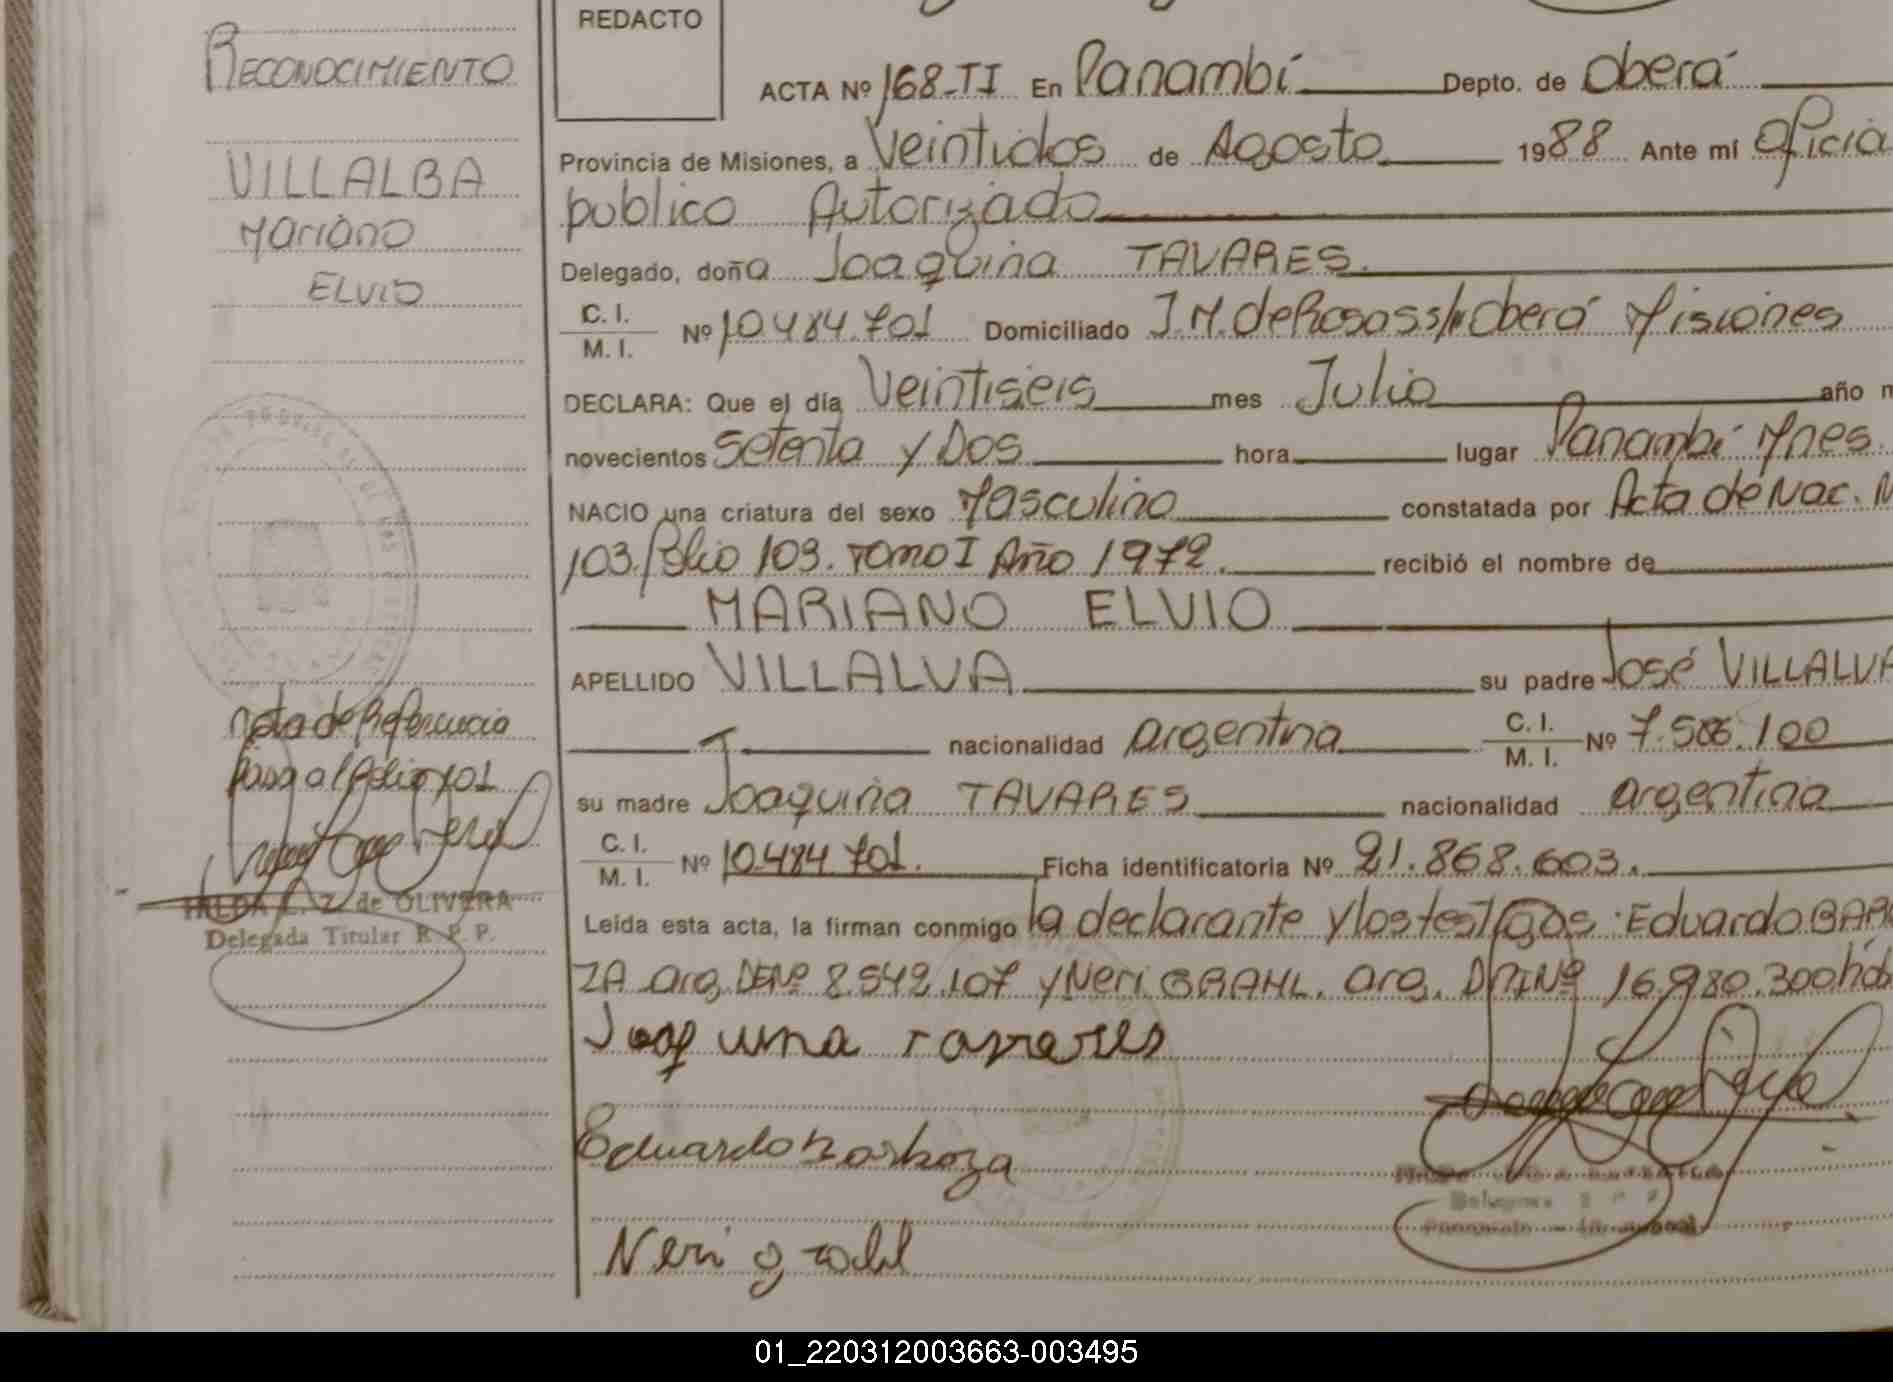 RECONOCIMIENTO
VILLALBA
Mariano
ELVIO
Nota de Referencia
Pasa al folio 701
de OLIVERA
Delegada Titular R. P. P.
REDACTO
ACTA Nº 168-TI En Panambí Depto. de Oberá
Provincia de Misiones, a Veintidos de Agosto 1988 Ante mí Oficia
publico Autorizado
Delegado, doña Joaquina TAVARES.
C. I.
M. I. Nº 10.484.701 Domiciliado J.M. de Rosas s/n Oberá Misiones
DECLARA: Que el día Veintiseis mes Julio año m
novecientos Setenta y Dos hora lugar Panambí Mnes.
NACIO una criatura del sexo Masculino constatada por Acta de Nac. N
103. folio 103. Tomo I Año 1972. recibió el nombre de
MARIANO ELVIO
APELLIDO VILLALVA su padre José VILLALVA
nacionalidad argentina C. I. M. I. Nº 7.506.100
su madre Joaquina TAVARES nacionalidad argentina
C. I.
M. I. Nº 10.484.701. Ficha identificatoria Nº 21.868.603.
Leída esta acta, la firman conmigo la declarante y los testigos: Eduardo BARBO
ZA arg. DNI Nº 8.542.107 y Neri GRAHL. arg. DNI Nº 16.980.300 háb
Joaquina Tavares
Eduardo Barboza
Neri grahl
01_220312003663-003495